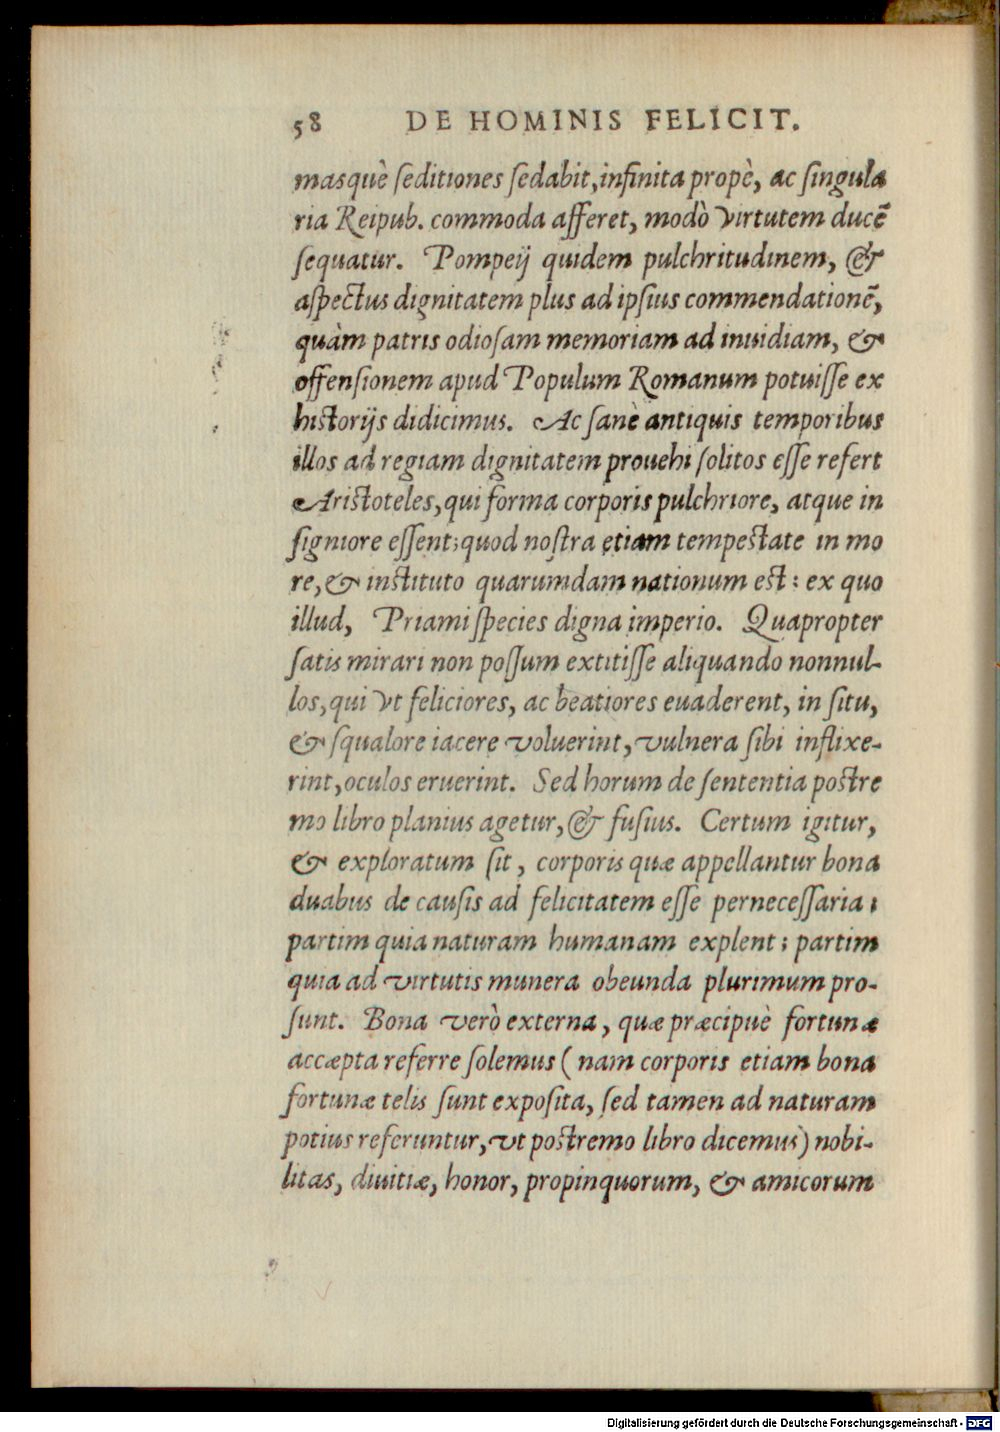 58 DE HOMINIS FELICIT.
masquè ſeditiones ſedabit, infinita propè, ac ſingula
ria Reipub. commoda afferet, modò virtutem ducē
ſequatur. Pompeij quidem pulchritudinem, &
aſpectus dignitatem plus ad ipſius commendationē,
quàm patris odioſam memoriam ad inuidiam, &
offenſionem apud Populum Romanum potuiſſe ex
historijs didicimus. Ac ſanè antiquis temporibus
illos ad regiam dignitatem prouehi ſolitos eſſe refert
Aristoteles, qui forma corporis pulchriore, atque in
ſigniore eſſent; quod noſtra etiam tempestate in mo
re, & instituto quarumdam nationum est: ex quo
illud, Priami ſpecies digna imperio. Quapropter
ſatis mirari non poſſum extitiſſe aliquando nonnul-
los, qui vt feliciores, ac beatiores euaderent, in ſitu,
& ſqualore iacere voluerint, vulnera ſibi inflixe-
rint, oculos eruerint. Sed horum de ſententia postre
mo libro planius agetur, & fuſius. Certum igitur,
& exploratum ſit, corporis quæ appellantur bona
duabus de cauſis ad felicitatem eſſe perneceſſaria;
partim quia naturam humanam explent; partim
quia ad virtutis munera obeunda plurimum pro-
ſunt. Bona verò externa, quæ præcipuè fortunæ
accæpta referre ſolemus (nam corporis etiam bona
fortunæ telis ſunt expoſita, ſed tamen ad naturam
potius referuntur, vt postremo libro dicemus) nobi-
litas, diuitiæ, honor, propinquorum, & amicorum
Digitalisierung gefördert durch die Deutsche Forschungsgemeinschaft - DFG